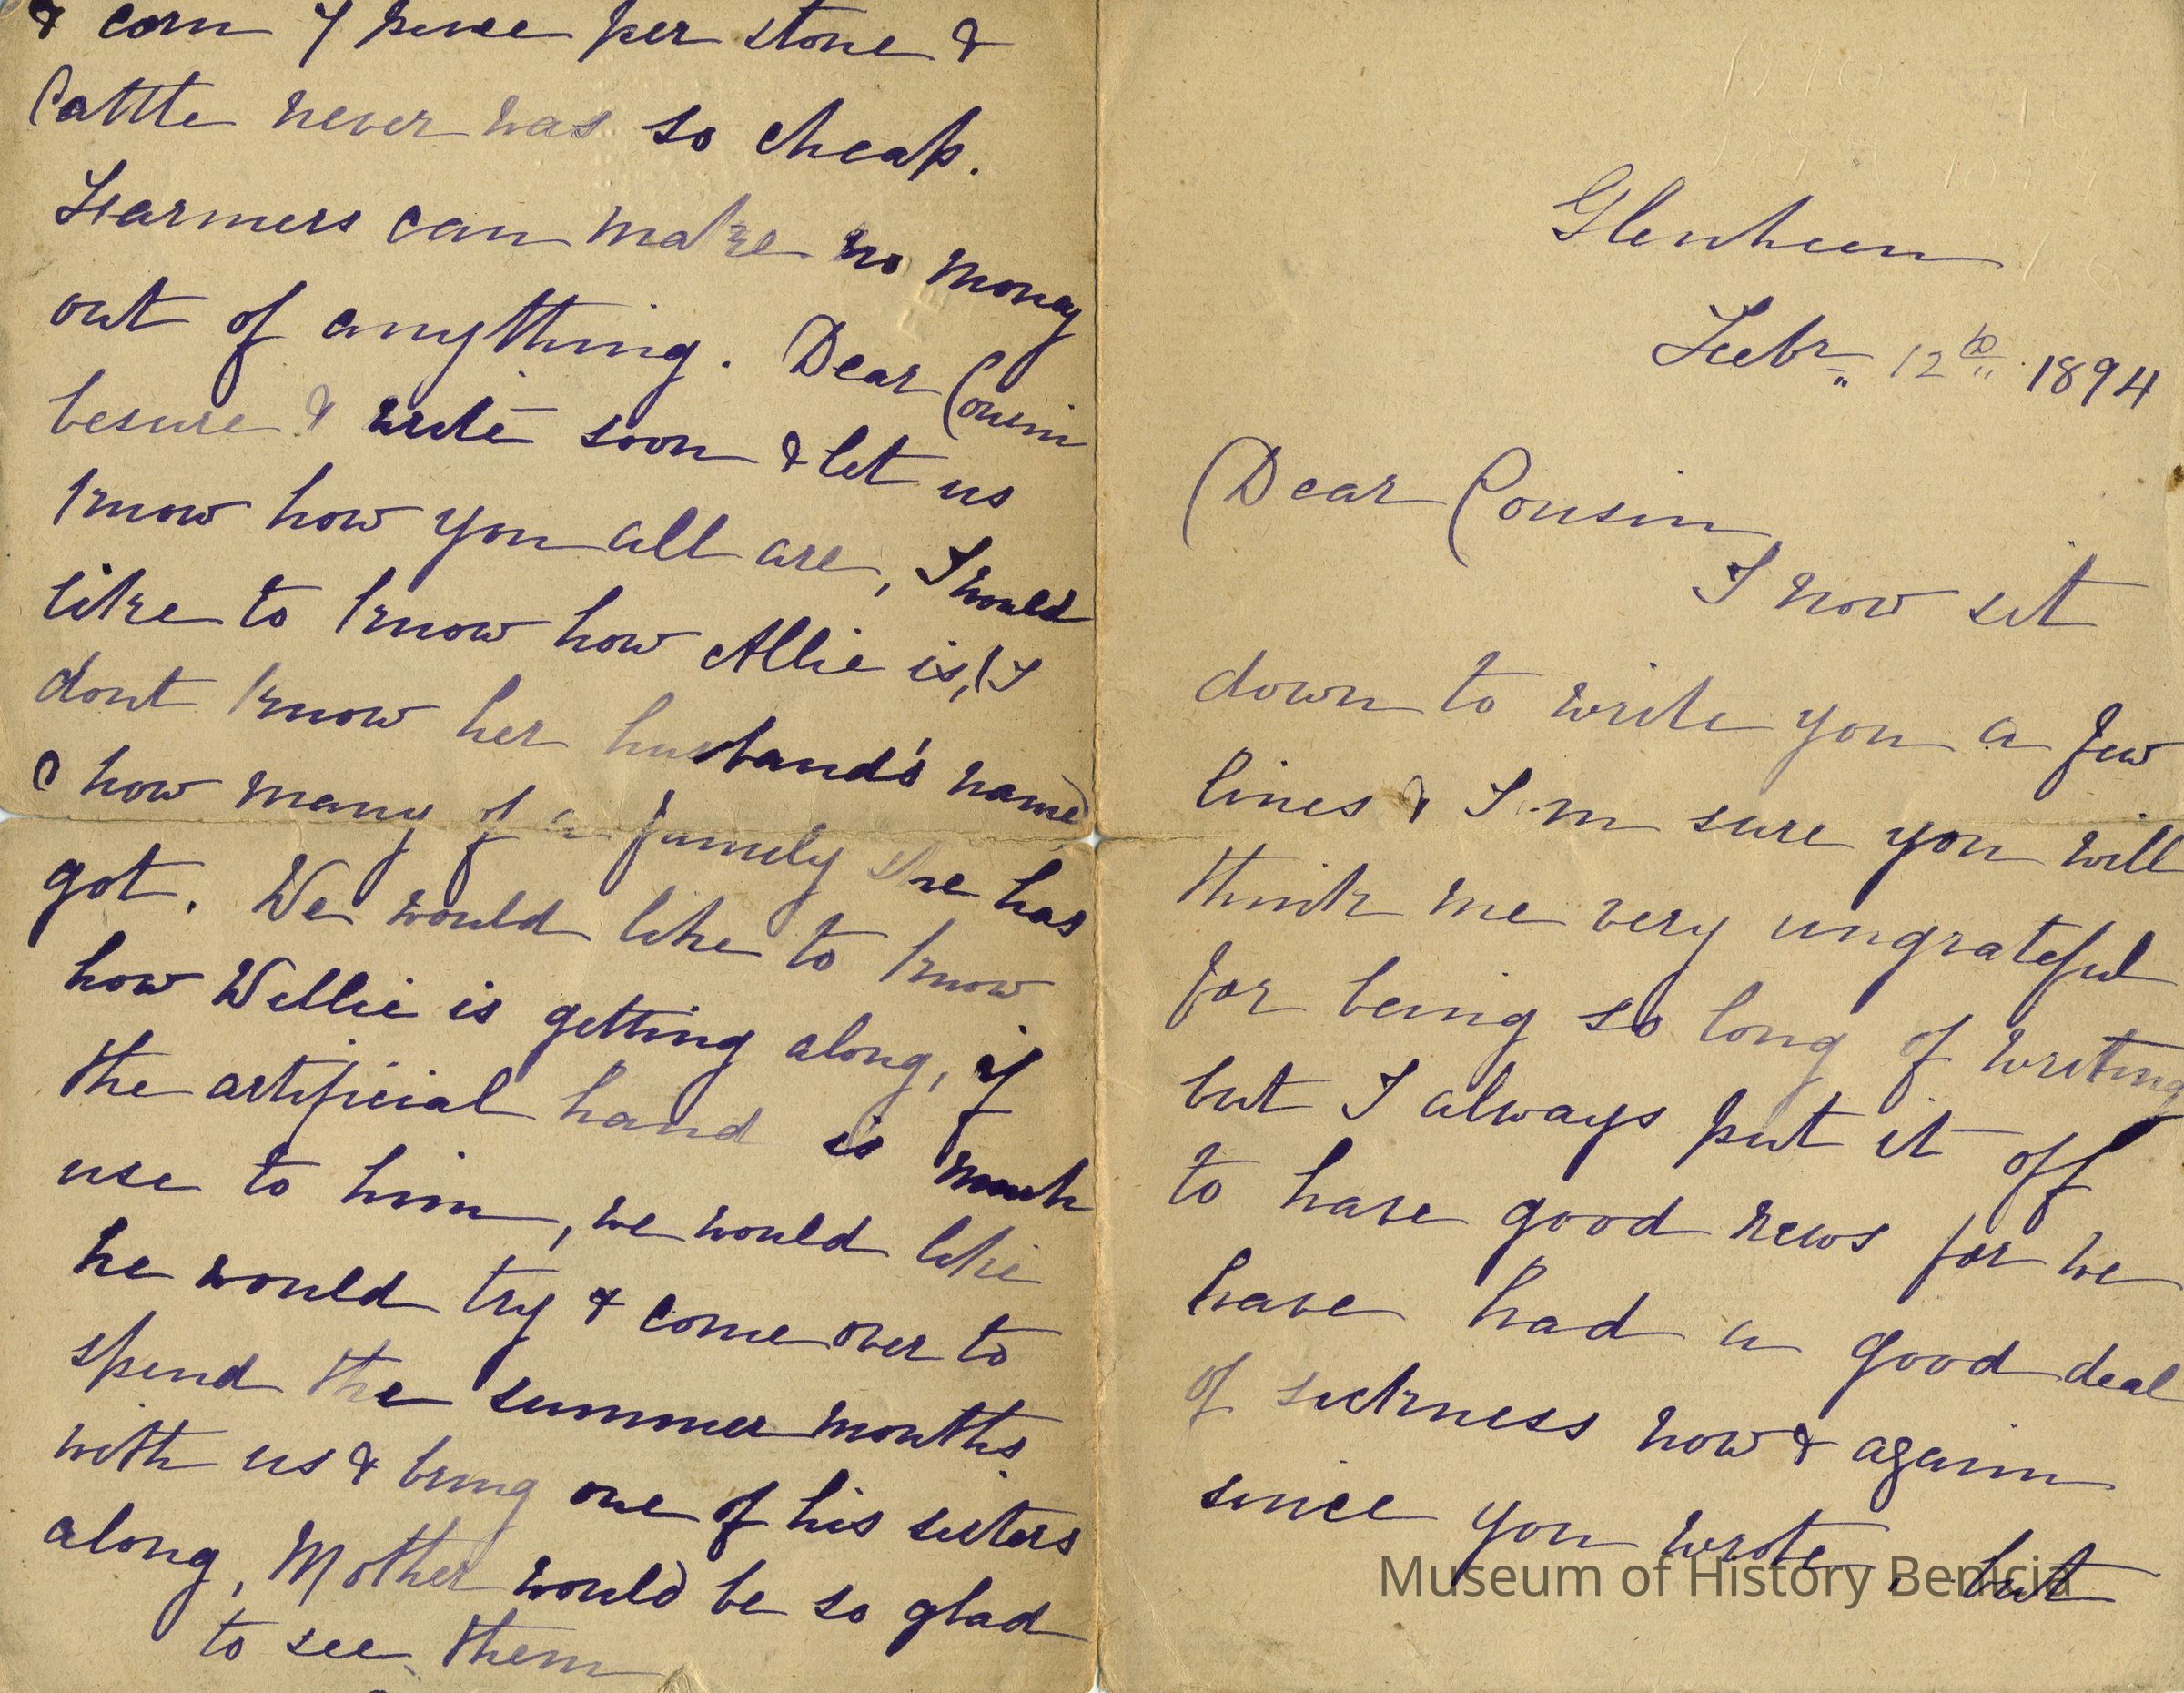 Glenheen
Feebr 12th 1894
Dear Cousin
I now sit
down to write you a few
lines & I m sure you will
think me very ungrateful
for being so long of writing
but I always put it off
to have good news for we
have had a good deal
of sickness now & again
since you wrote, but
& corn 7 pence per stone &
Cattle never was so cheap.
Farmers can make no money
out of anything. Dear Cousin
besure & write soon & let us
know how you all are, I would
like to know how Allie is, (I
dont know her husband's name)
& how many of a family she has
got. We would like to know
how Willie is getting along, if
the artificial hand is much
use to him, we would like
he would try & come over to
spend the summer months
with us & bring one of his sisters
along, Mother would be so glad
to see them
Museum of History Benicia